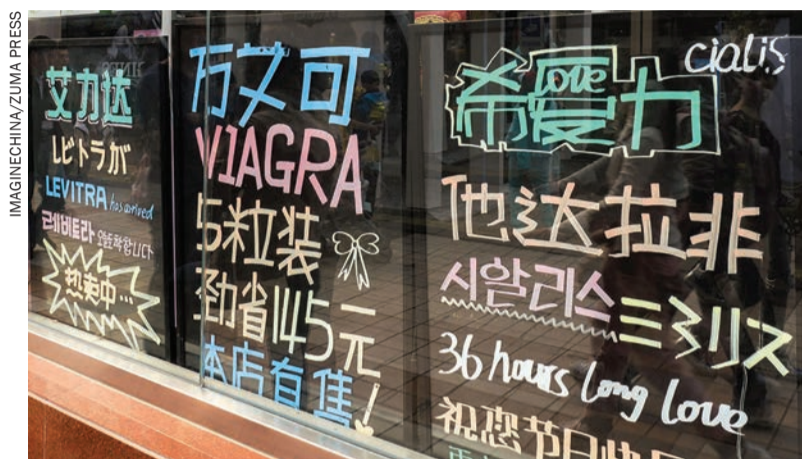 IMAGINECHINA/ZUMA PRESS
艾力达
レビトラが
LEVITRA has arrived
레비트라
热卖中...
万艾可
VIAGRA
5粒装
劲省145元
本店有售!
cialis
希爱力
love
他达拉非
시알리스
36 hours long love
祝您节日快